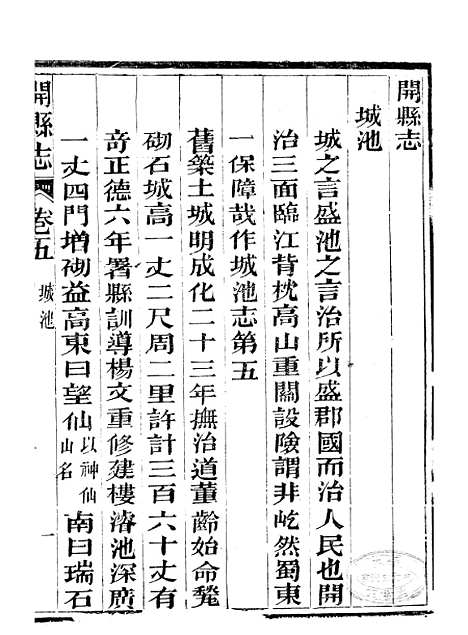 開縣志
城池
城之言盛池之言治所以盛郡國而治人民也開
治三面臨江背枕高山重關設險謂非屹然蜀東
一保障哉作城池志第五
舊築土城明成化二十三年撫治道董齡始命甃
砌石城高一丈二尺周二里許計三百六十丈有
奇正德六年署縣訓導楊文重修建樓濬池深廣
一丈四門增砌益高東曰望仙以神仙山名南曰瑞石
開縣志 卷五 城池 一